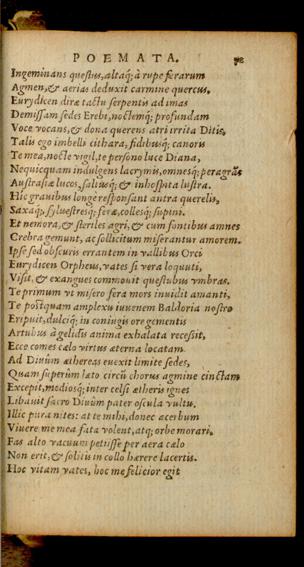 POEMATA.
Ingeminans questus, altaq; à rupe ferarum
Agmen, & aerias deduxit carmine quercus.
Eurydicen diræ tactu serpentis ad imas
Demissam sedes Erebi, noctemq; profundam
Voce vocans, & dona querens atri irrita Ditis,
Talis ego imbelli cithara, fidibusq; canoris
Te mea, nocte vigil, te persono luce Diana,
Nequicquam indulgens lacrymis, omnesq; peragrãs
Austrasiæ lucos, saltusq; & inhospita lustra.
Hic grauibus longè responsant antra querelis,
Saxaq; syluestresq; feræ, collesq; supini.
Et nemora, & steriles agri, & cum fontibus amnes
Crebra gemunt, ac sollicitum miserantur amorem.
Ipse sed obscuris errantem in vallibus Orci
Eurydicen Orpheus, vates si vera loquuti,
Visit, & exangues commouit questubus vmbras.
Te primum vt misero fera mors inuidit amanti,
Te postquam amplexu iuuenem Baldoria nostro
Eripuit, dulciq; in coniugis ore gementis
Artubus à gelidis anima exhalata recessit,
Ecce comes cælo virtus æterna locatam.
Ad Diuûm æthereas euexit limite sedes,
Quam superûm lato circũ chorus agmine cinctam
Excepit, mediosq; inter celsi ætheris ignes
Libauit sacro Diuûm pater oscula vultu.
Illic pura nites: at te mihi, donec acerbum
Viuere me mea fata volent, atq; orbe morari,
Fas alto vacuum petiisse per aera cælo
Non erit, & solitis in collo hærere lacertis.
Hoc vitam vates, hoc me felicior egit